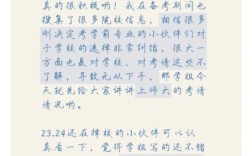 真的很积极呢！我在备考期间也
搜集了很多院校信息，相信很多
刚决定考学前专业的小伙伴们对
于学校的选择非常纠结，很大一
方面也是对学校，对考情这些不
了解，导致无从下手，那学姐今
天就先给大家讲讲上师大的考情
情况哟。
23.24还在择校的小伙伴可以认
真看一下，觉得学姐写的还不错